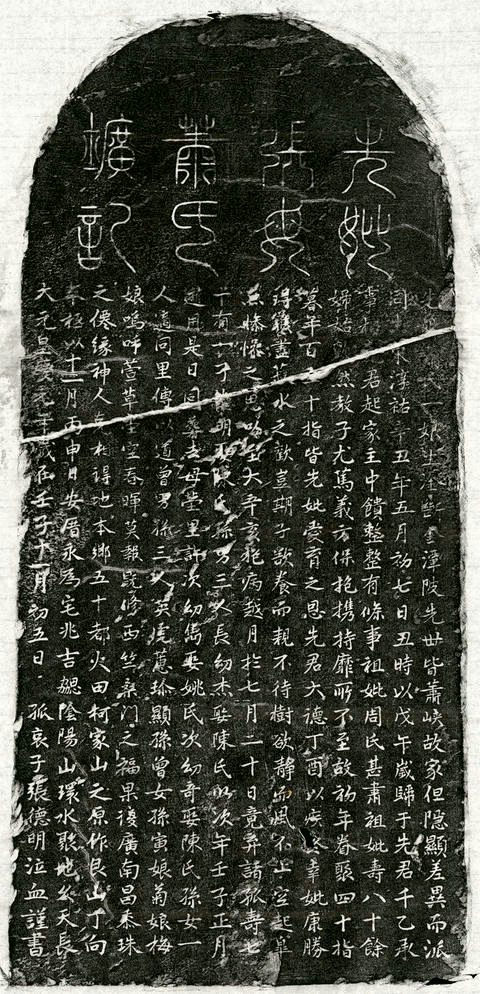 先妣
張母
蕭氏
壙記
娘生淦新金潭陂先世皆蕭峽故家但隱顯差異而派
同 宋淳祐辛丑年五月初七日丑時以戊午歲歸于先君千乙承
君起家主中饋整整有條事祖妣周氏甚肅祖妣壽八十餘
婦姑 然教子尤篤義方保抱攜持靡所不至故初年眷聚四十指
暮年百 十指皆先妣愛育之恩先君大德丁酉以疾終幸妣康勝
得 盡菽水之歡豈期子欲養而親不待樹欲静而風不止空起皐
魚慘慘之思 至大辛亥抱病越月於七月二十日竟弃諸孤壽七
十有一子 明 陳氏孫男三人長幼杰娶陳氏以次年壬子正月
用是日同 父母堂里許次幼雋娶姚氏次幼奇娶陳氏孫女一
人適同里傅以道曾男孫三人英 蕙 顯孫曾女孫寅娘菊娘梅
娘嗚呼萱草生空春暉莫報既修西竺桑門之福果復廣南昌泰珠
之僊緣神人 相得地本鄉五十都火田柯家山之原作艮山丁向
奉柩以十一月丙申日安厝永爲宅兆吉 陰陽山環水聚地久天長
大元皇慶元年歲在壬子十一月初五日孤哀子張德明泣血謹書